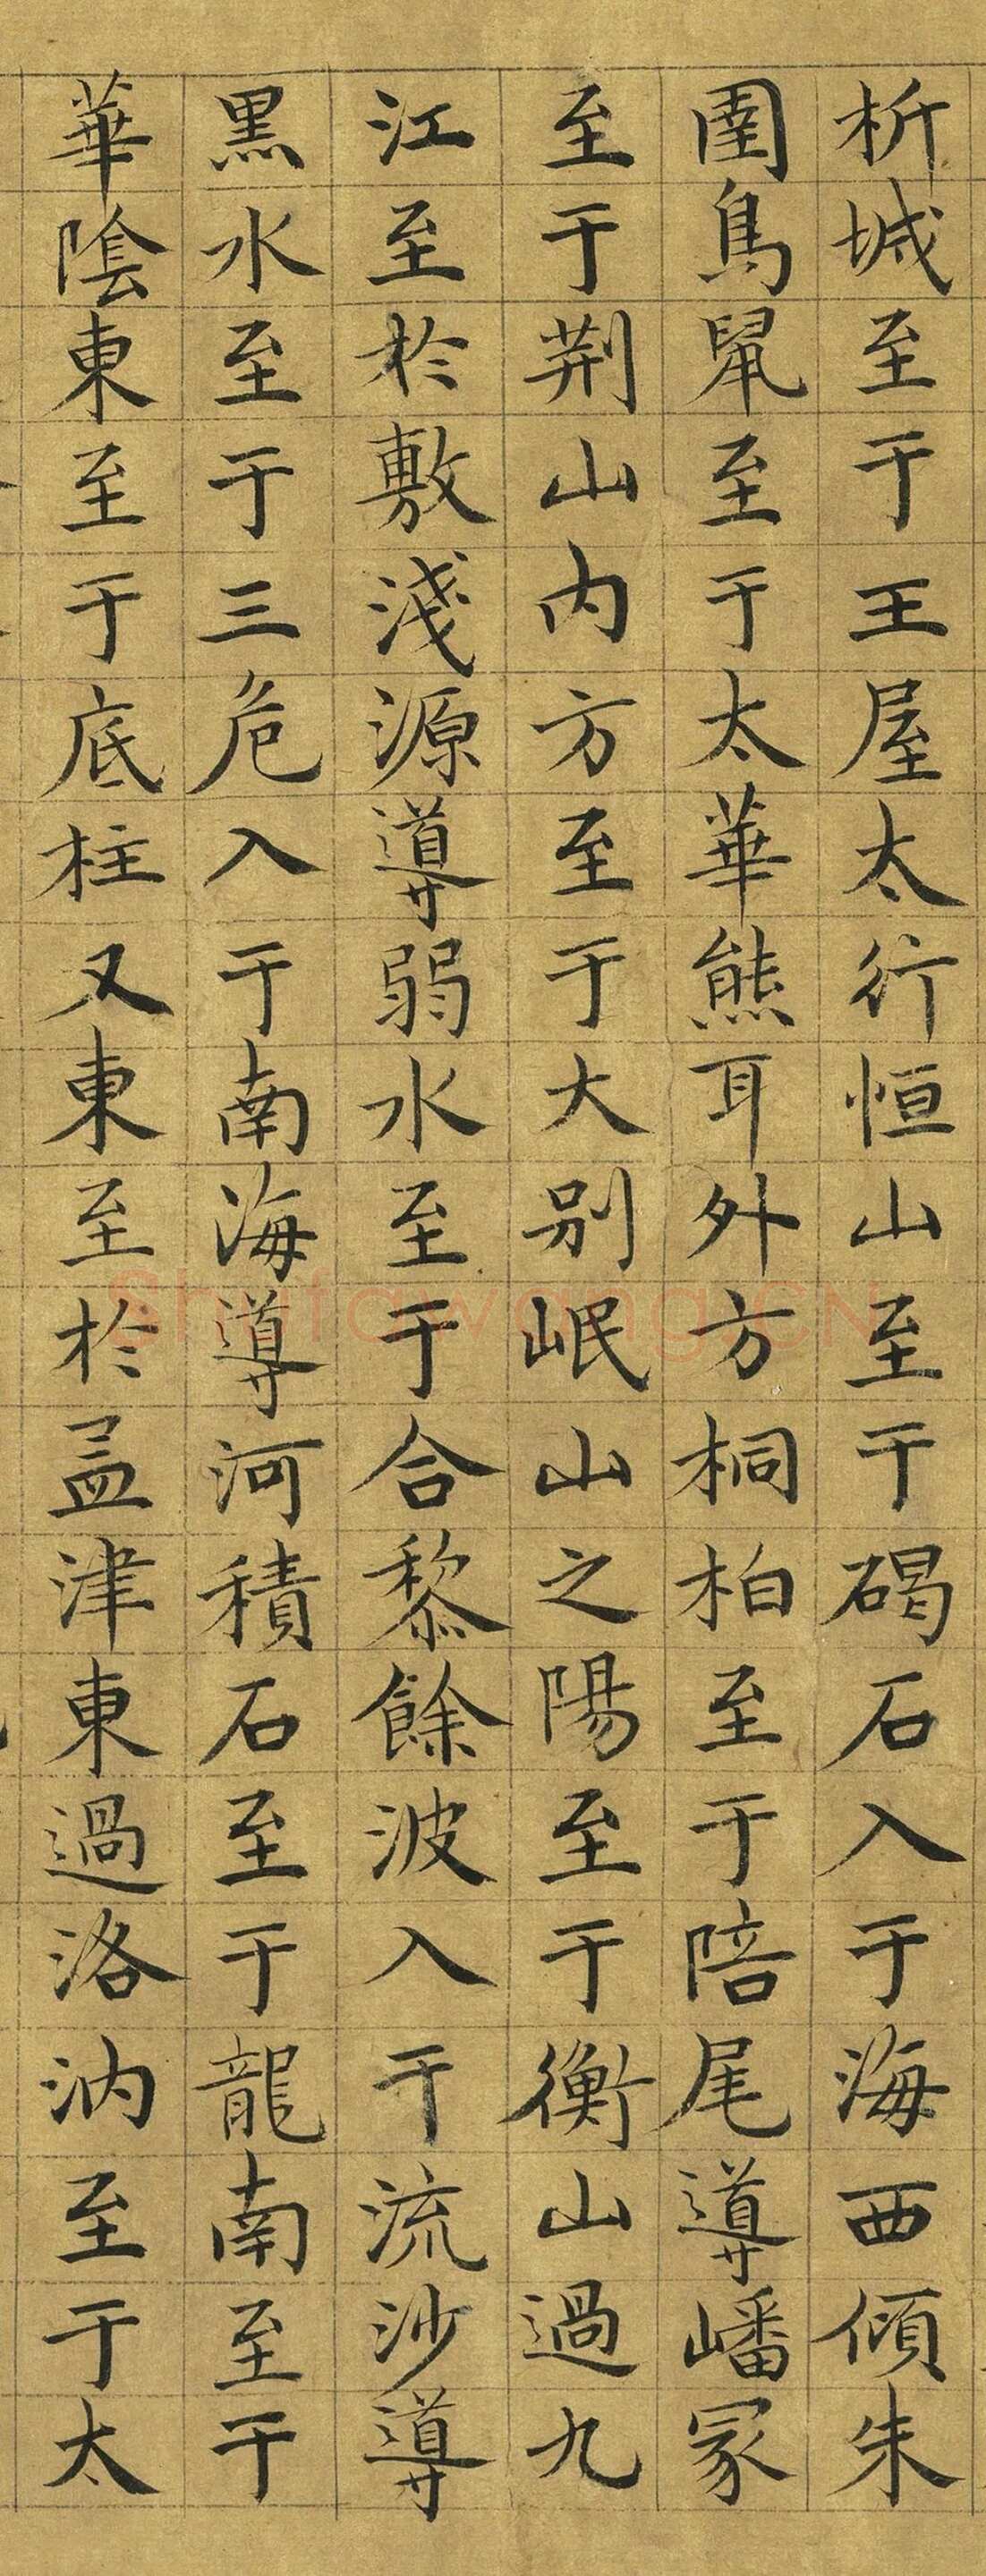 析城至于王屋太行恒山至于碣石入于海西傾朱
圉鳥鼠至于太華熊耳外方桐柏至于陪尾導嶓冢
至于荆山内方至于大别岷山之陽至于衡山過九
江至於敷淺源導弱水至于合黎餘波入于流沙導
黑水至于三危入于南海導河積石至于龍南至于
華陰東至于底柱又東至於孟津東過洛汭至于太
Shufawang.CN